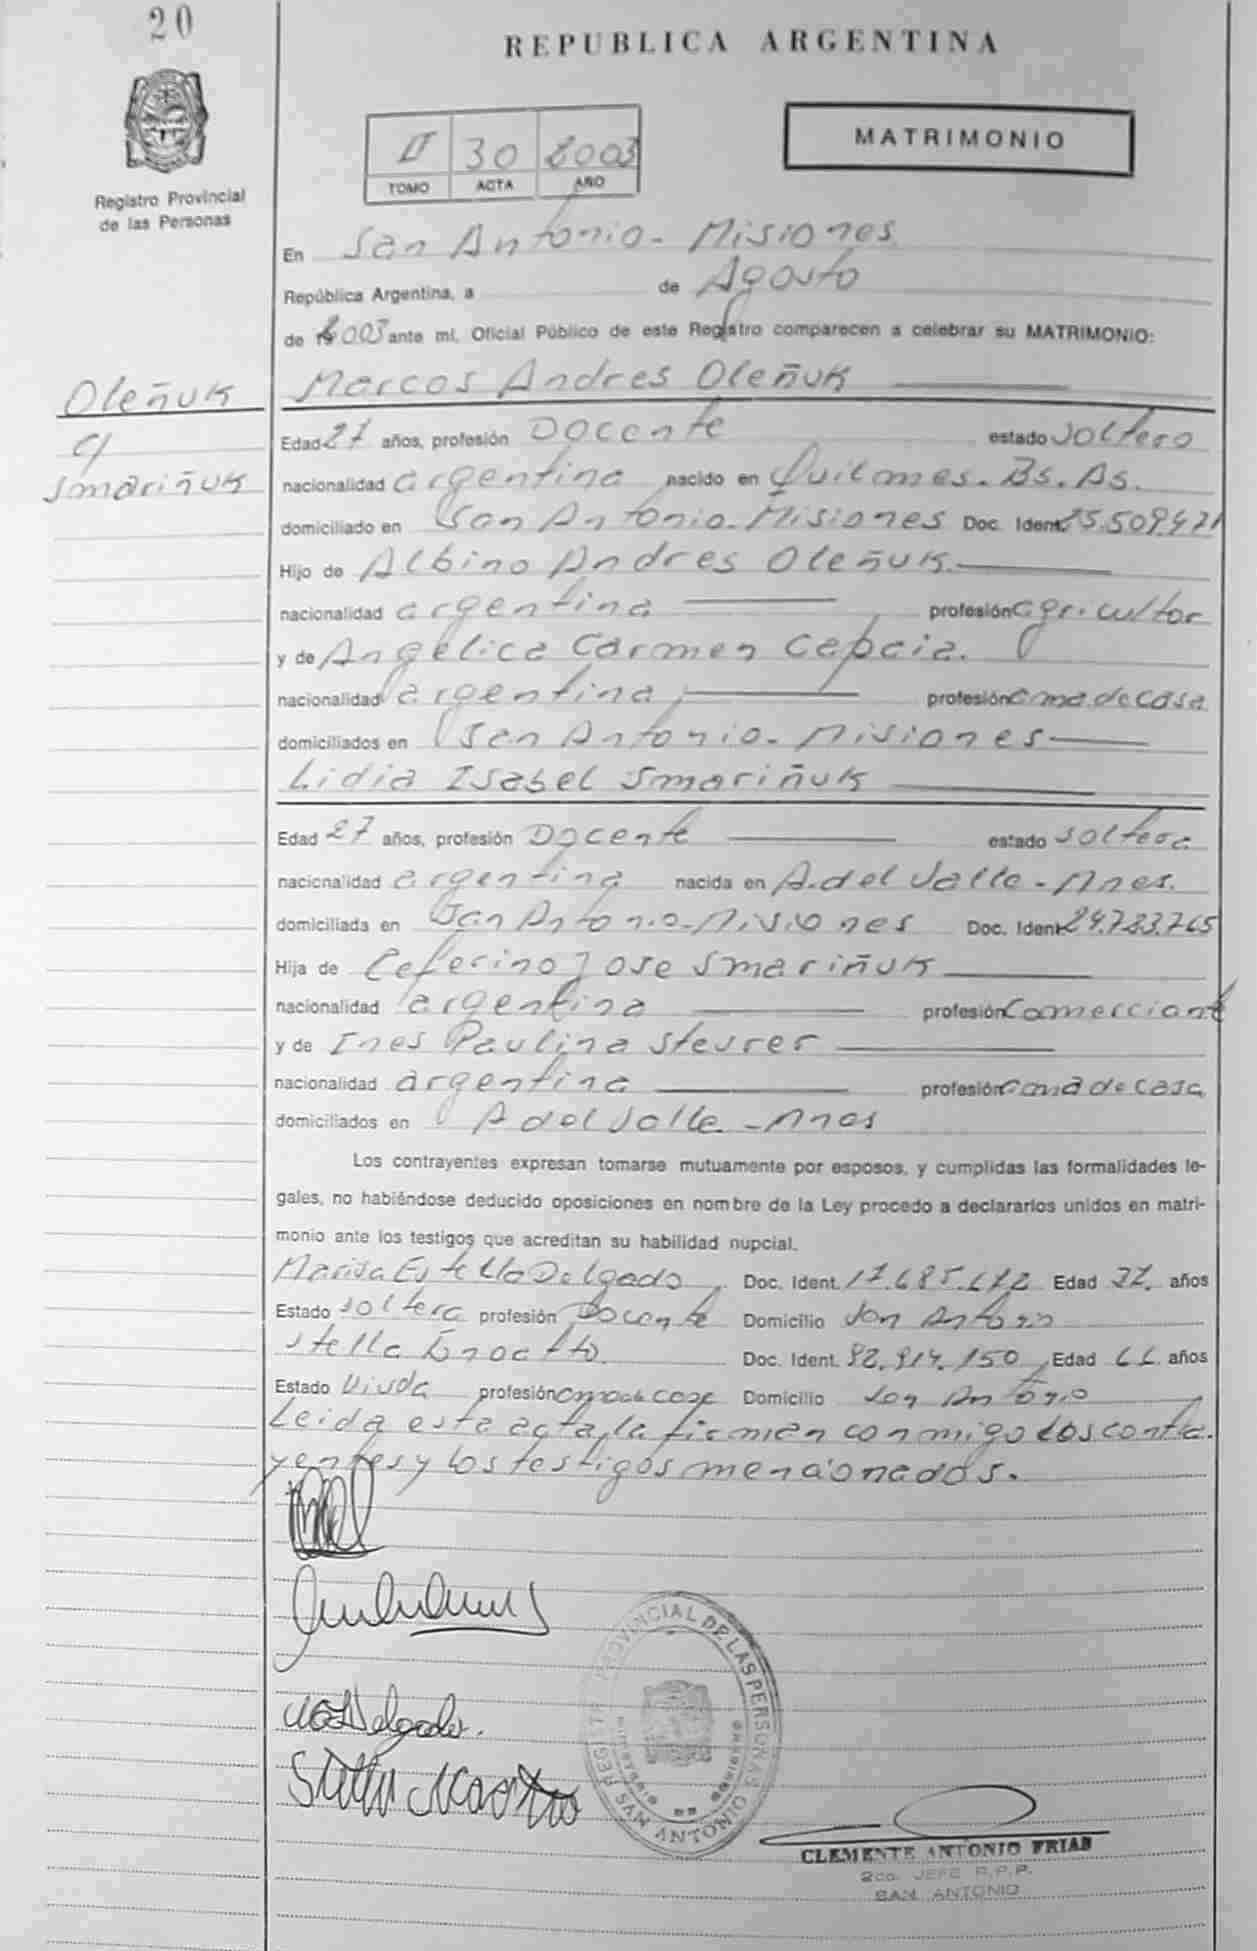 20
REPUBLICA ARGENTINA
Registro Provincial
de las Personas
II 30 2003
TOMO ACTA AÑO
MATRIMONIO
En San Antonio - Misiones
República Argentina, a de Agosto
de 2003 ante mí, Oficial Público de este Registro comparecen a celebrar su MATRIMONIO:
Oleñuk
c/
Smariñuk
Marcos Andres Oleñuk
Edad 27 años, profesión Docente estado soltero
nacionalidad argentina nacido en Quilmes. Bs. As.
domiciliado en San Antonio - Misiones Doc. Ident. 25.509.471
Hijo de Albino Andres Oleñuk
nacionalidad argentina profesión agricultor
y de Angelica Carmen
nacionalidad argentina profesión ama de casa
domiciliados en San Antonio - Misiones
Lidia Isabel Smariñuk
Edad 27 años, profesión Docente estado soltera
nacionalidad argentina nacida en A. del Valle - Mnes.
domiciliada en San Antonio - Misiones Doc. Ident. 24.723.765
Hija de Ceferino Jose Smariñuk
nacionalidad argentina profesión Comerciante
y de Ines Paulina
nacionalidad argentina profesión ama de casa
domiciliados en A del Valle - Mnes
Los contrayentes expresan tomarse mutuamente por esposos, y cumplidas las formalidades le-
gales, no habiéndose deducido oposiciones en nombre de la Ley procedo a declararlos unidos en matri-
monio ante los testigos que acreditan su habilidad nupcial.
Marisa Estella Delgado Doc. Ident. Edad 37. años
Estado soltera profesión Docente Domicilio San Antonio
Stella Doc. Ident. 92.914.150 Edad 66 años
Estado Viuda profesión ama de casa Domicilio San Antonio
Leida esta acta, la firman conmigo los contra-
yentes y los testigos mencionados.
Delgado.
Stella
REGISTRO PROVINCIAL DE LAS PERSONAS
MINISTERIO DE GOBIERNO
SAN ANTONIO
CLEMENTE ANTONIO FRIAS
2do. JEFE R.P.P.
SAN ANTONIO